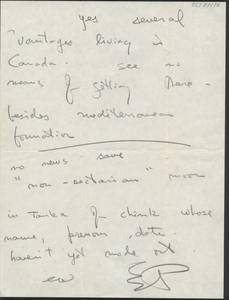 yes several
vantages living in
Canada. see no
means of getting
besides mediterranean
formation
no news save
"non-sectarian" moon
in Tanka of chink whose
name, prenom, date.
haven't yet made out